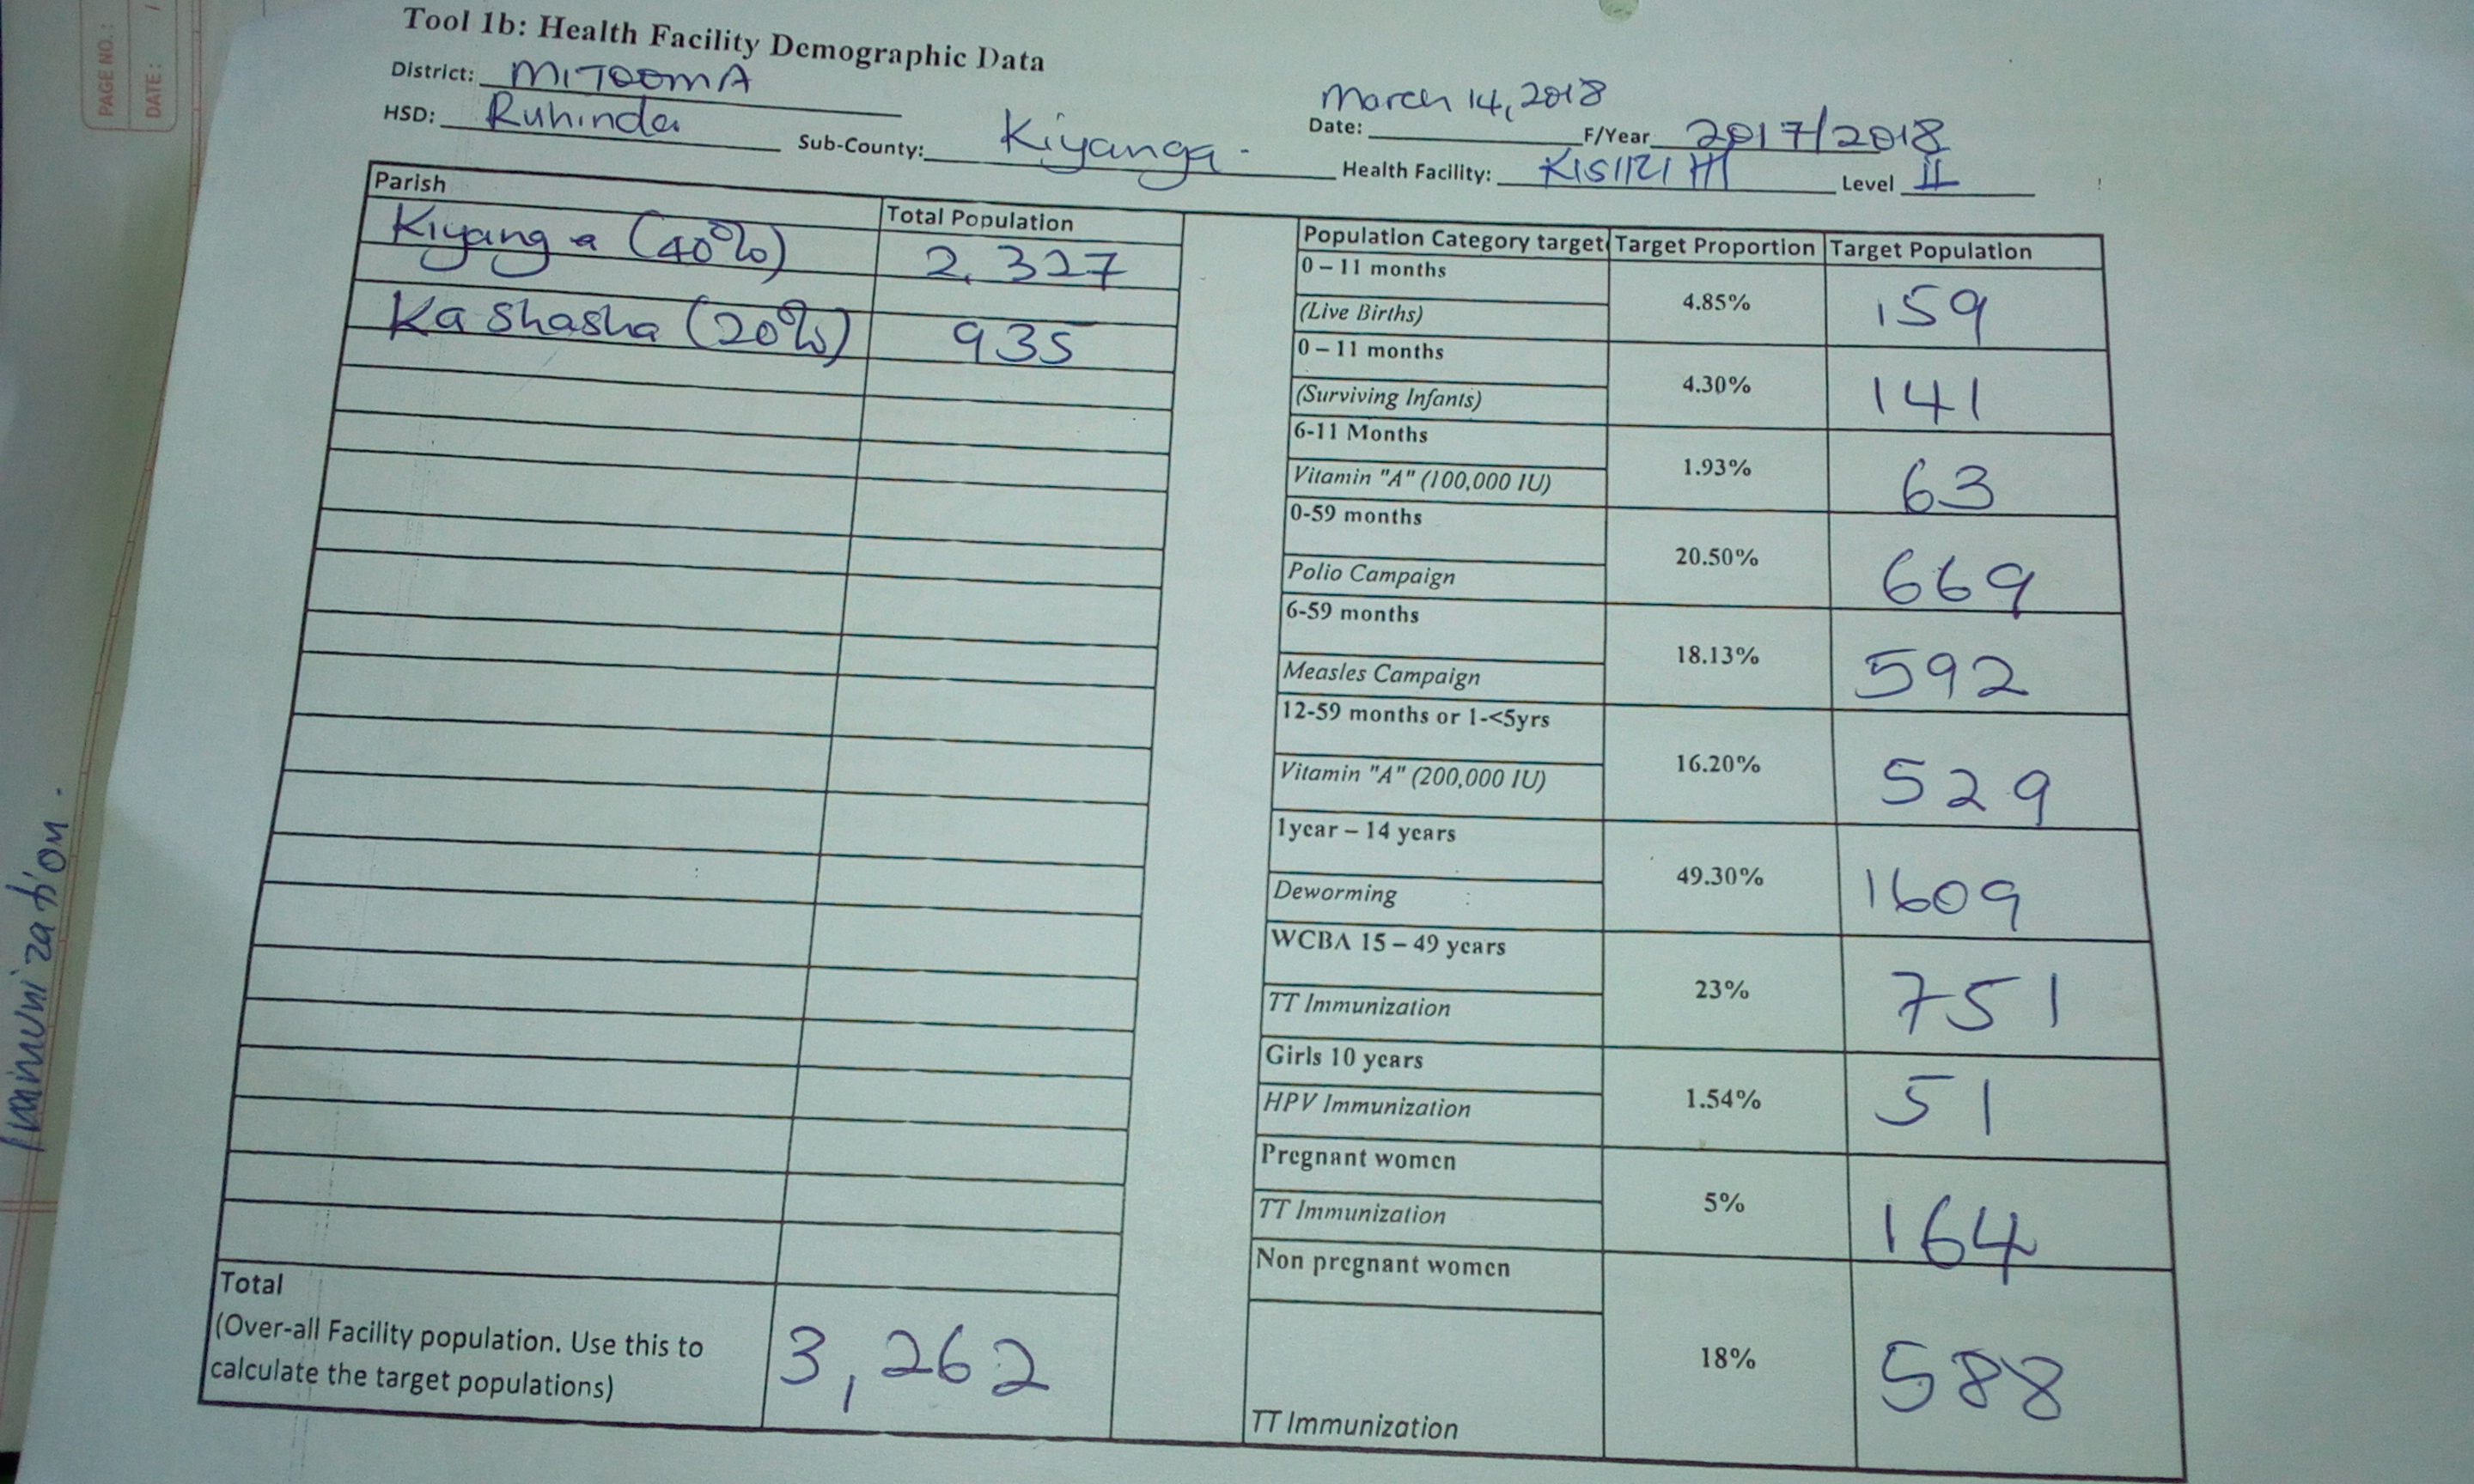 PAGE NO.:
DATE: /
Immunization.
Tool 1b: Health Facility Demographic Data
District: MITOOMA
March 14, 2018
HSD: Ruhinda Sub-County: Kiyanga. Date: F/Year 2017/2018
Health Facility: Level II
Parish Total Population
Kiyanga (40%) 2,327
Kashasha (20%) 935
Total
(Over-all Facility population. Use this to
calculate the target populations) 3,262
Population Category target Target Proportion Target Population
0 – 11 months
(Live Births) 4.85% 159
0 – 11 months
(Surviving Infants) 4.30% 141
6-11 Months
Vitamin "A" (100,000 IU) 1.93% 63
0-59 months
Polio Campaign 20.50% 669
6-59 months
Measles Campaign 18.13% 592
12-59 months or 1-<5yrs
Vitamin "A" (200,000 IU) 16.20% 529
1year – 14 years
Deworming 49.30% 1609
WCBA 15 – 49 years
TT Immunization 23% 751
Girls 10 years
HPV Immunization 1.54% 51
Pregnant women
TT Immunization 5% 164
Non pregnant women
TT Immunization 18% 588